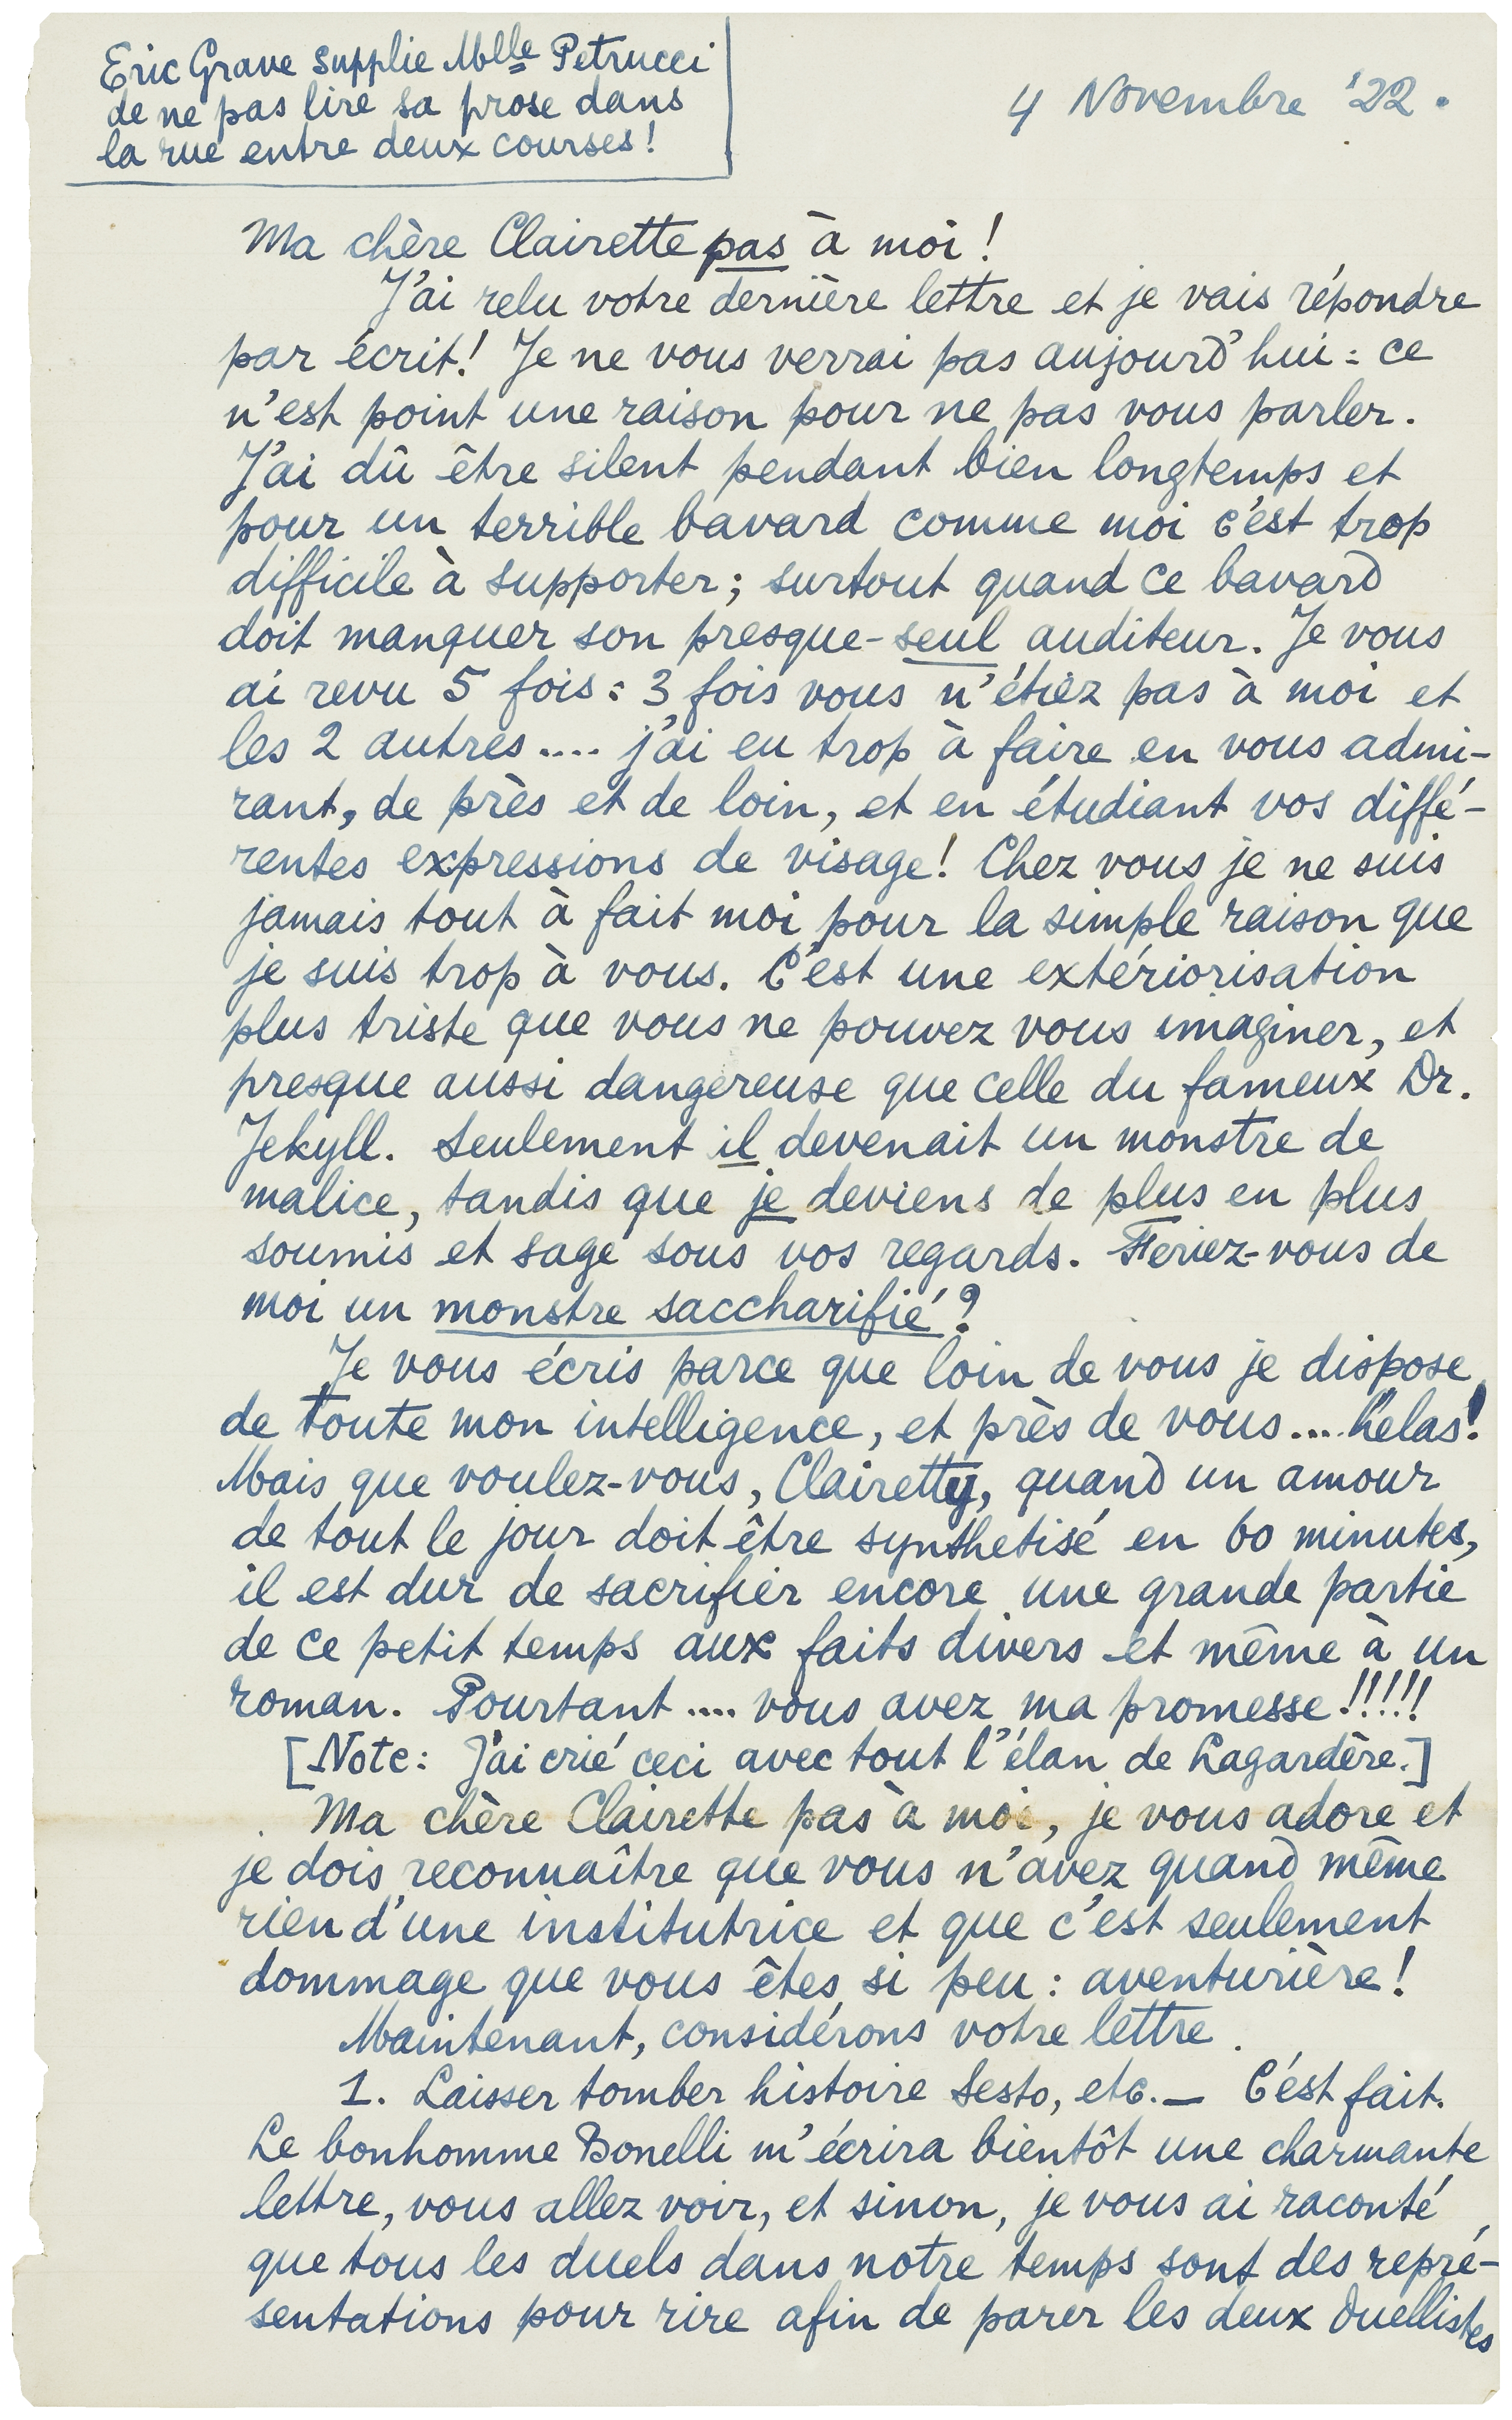 Eric Grave supplie Mlle Petrucci
de ne pas lire sa prose dans
la rue entre deux courses!
4 Novembre '22.
Ma chère Clairette pas à moi!
J'ai relu votre dernière lettre et je vais répondre
par écrit! Je ne vous verrai pas aujourd'hui: ce
n'est point une raison pour ne pas vous parler.
J'ai dû être silent pendant bien longtemps et
pour un terrible bavard comme moi c'est trop
difficile à supporter; surtout quand ce bavard
doit manquer son presque-seul auditeur. Je vous
ai revu 5 fois: 3 fois vous n'étiez pas à moi et
les 2 autres.... j'ai eu trop à faire en vous admi-
rant, de près et de loin, et en étudiant vos diffé-
rentes expressions de visage! Chez vous je ne suis
jamais tout à fait moi pour la simple raison que
je suis trop à vous. C'est une extériorisation
plus triste que vous ne pouvez vous imaginer, et
presque aussi dangereuse que celle du fameux Dr.
Jekyll. Seulement il devenait un monstre de
malice, tandis que je deviens de plus en plus
soumis et sage sous vos regards. Feriez-vous de
moi un monstre saccharifié?
Je vous écris parce que loin de vous je dispose
de toute mon intelligence, et près de vous... helas!
Mais que voulez-vous, Clairetty, quand un amour
de tout le jour doit être synthetisé en 60 minutes,
il est dur de sacrifier encore une grande partie
de ce petit temps aux faits divers et même à un
roman. Pourtant .... vous avez ma promesse!!!!!
[Note: J'ai crié ceci avec tout l'élan de Lagardère.]
Ma chère Clairette pas à moi, je vous adore et
je dois reconnaître que vous n'avez quand même
rien d'une institutrice et que c'est seulement
dommage que vous êtes si peu: aventurière!
Maintenant, considérons votre lettre.
1. Laisser tomber histoire Sesto, etc. — C'est fait.
Le bonhomme Bonelli m'écrira bientôt une charmante
lettre, vous allez voir, et sinon, je vous ai raconté
que tous les duels dans notre temps sont des repré-
sentations pour rire afin de parer les deux duellistes